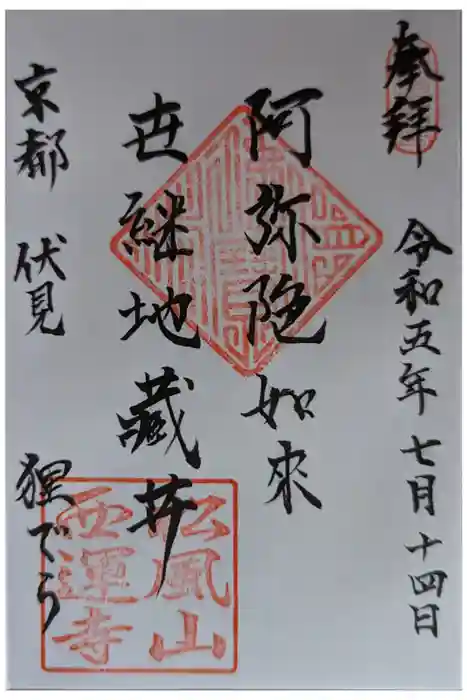 奉拝
令和五年七月十四日
阿弥陀如來
世継地蔵𦬇
京都 伏見 狸でら
松風山
西運寺